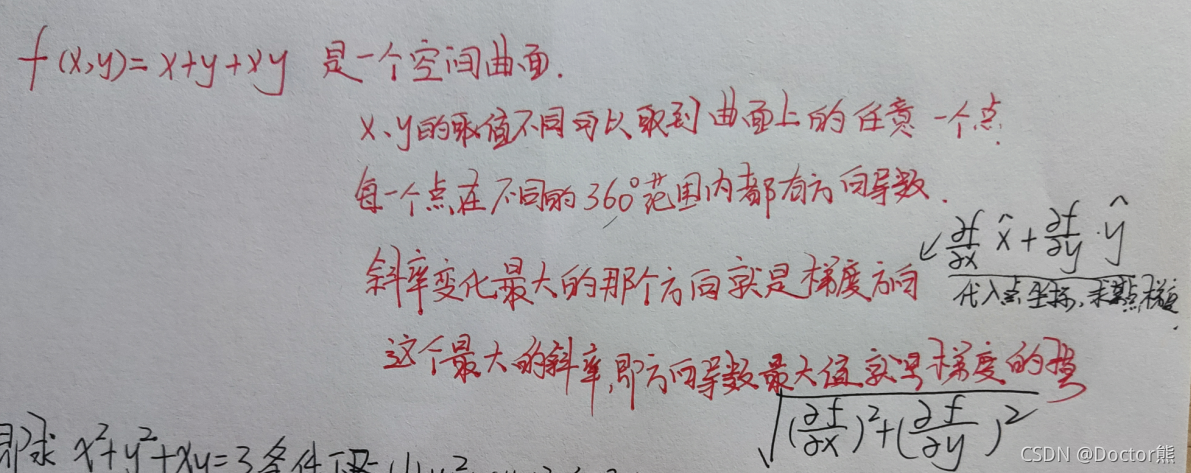 f(x,y)=x+y+xy 是一个空间曲面.
x、y的取值不同可以取到曲面上的任意一个点
每一个点在不同的360°范围内都有方向导数.
斜率变化最大的那个方向就是梯度方向 ↙ ∂f/∂x x̂ + ∂f/∂y · ŷ
代入点坐标,求某点梯度
这个最大的斜率,即方向导数最大值就是梯度的模
√((∂f/∂x)²+(∂f/∂y)²)
即求 x²+y²+xy=3条件下
CSDN @Doctor熊